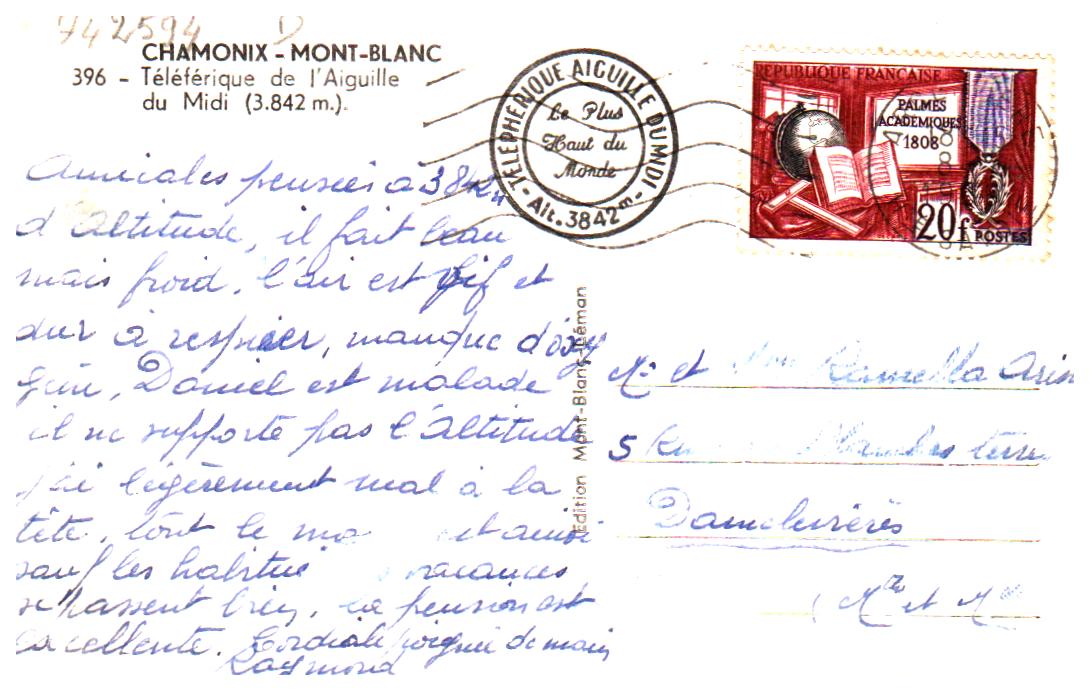 742594 D
CHAMONIX - MONT-BLANC
396 - Téléférique de l'Aiguille
du Midi (3.842 m.).
TÉLÉPHÉRIQUE AIGUILLE DU MIDI
- Alt. 3842m -
Le Plus
Haut du
Monde
REPUBLIQUE FRANÇAISE
PALMES
ACADÉMIQUES
1808
20f
POSTES
Amicales pensées à 3842m
d'altitude, il fait beau
mais froid, l'air est vif et
dur à respirer, manque d'oxy
gène, Daniel est malade
il ne supporte pas l'altitude
j'ai légèrement mal à la
tête, tout le mo est ainsi
sauf les habitué vacances
se passent bien, la pension est
excellente. Cordiale poignée de main
Raymond
Edition Mont-Blanc-Léman
Mr et Mme
5 Rue terre
Damelevières
(Mthe et Mlle